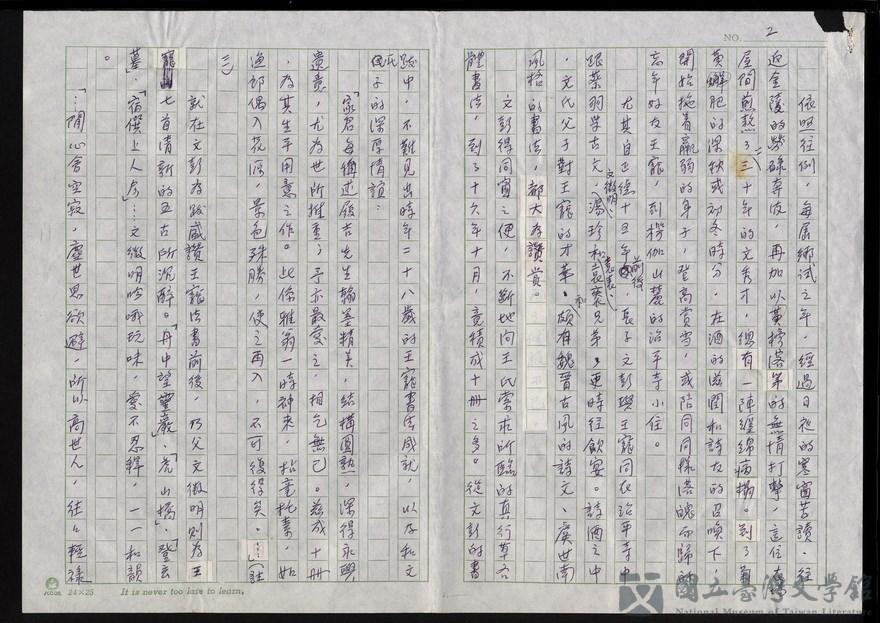 NO. 2
依照往例，每屆鄉試之年，經過日夜的寒窗苦讀，往
返金陵的勞碌奔波，再加以黃榜落第的無情打擊，這位在
屋間煎熬了三十年的文秀才，總有一陣纏綿病榻。到了菊
黃蟹肥的深秋或初冬時分，在酒的滋潤和詩友的召喚下，
開始拖着羸弱的身子，登高賞雪，或陪同同樣落魄而歸的
忘年好友王寵，到楞伽山麓的治平寺小住。
尤其自正德十五年前後，長子文彭與王寵同在治平寺中
跟蔡羽學古文，文徵明、湯珍和袁表、袁褧兄弟，更時往飲宴。詩酒之中
，文氏父子對王寵的才華，頗有魏晉古風的詩文，和虞世南
風格的書法，都大為讚賞。
文彭得同窗之便，不斷地向王氏索求所臨的真行草各
體書法，到了十六年十月，竟積成十冊之多。從文彭的書
跋中，不難見出時年二十八歲的王寵書法成就，以及和文
氏子的深厚情誼：
「家君每稱述履吉先生翰墨精美，結構圓熟，深得永興
遺意，尤為世所推重；予亦最愛之，相乞無已。茲成十冊
，為其生平用意之作。此倫雅翁一時神來，拈毫托素，如
漁郎偶入花源，景色殊勝，使之再入，不可復得矣。…」（註
三）
就在文彭為跋盛讚王寵法書前後，乃父文徵明則為王
寵七首清新的五古所沉醉。「舟中望靈巖」、「虎山橋」、「登玄
墓」、「宿僎上人房」…文徵明吟哦玩味，愛不忍釋，一一和韻
。
「…閒心會空寂，塵世思欲避，所以高世人，往往輕祿
24×25 It is never too late to learn.
國立臺灣文學館
National Museum of Taiwan Literature